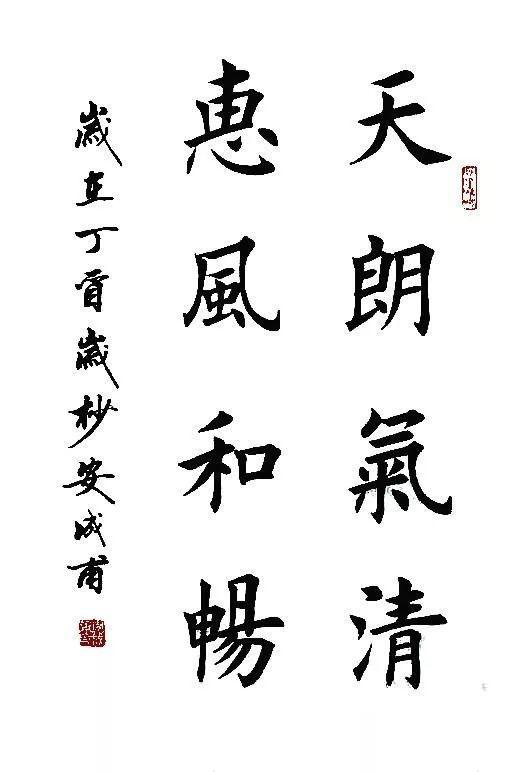 天朗氣清
惠風和暢
歲在丁酉歲杪安成甫